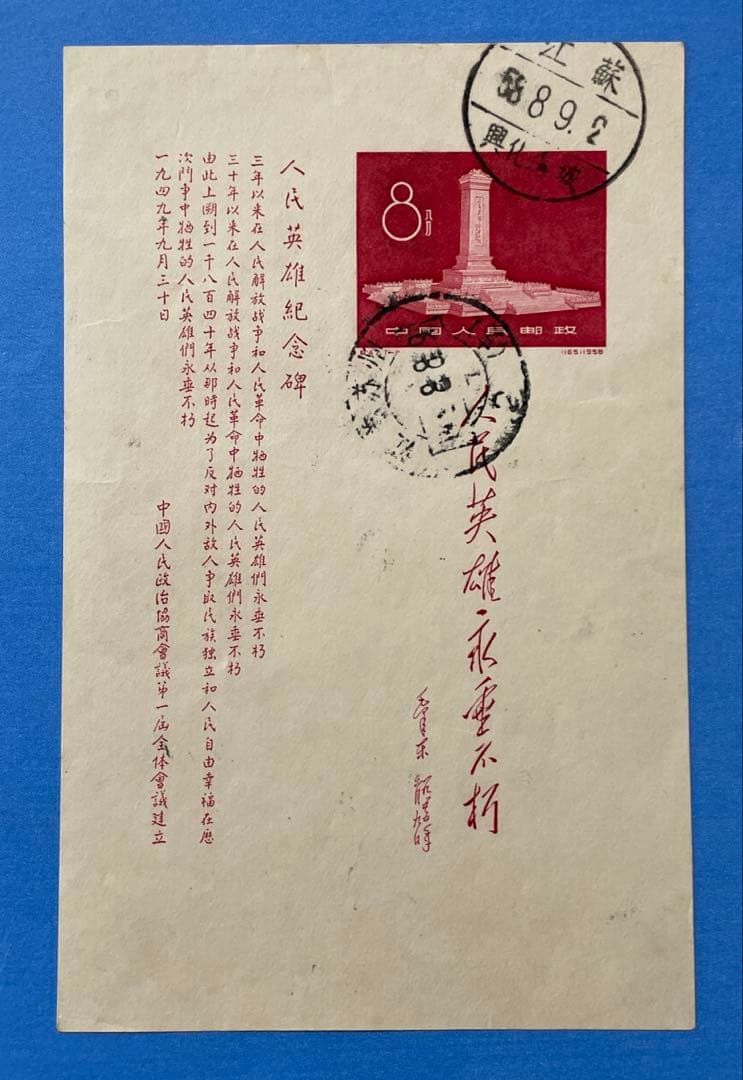 江蘇
58.8.9.2
興化
8
八分
中国人民邮政
(165)1958
人民英雄永垂不朽
毛泽东
人民英雄紀念碑
三年以来在人民解放战争和人民革命中牺牲的人民英雄們永垂不朽
三十年以来在人民解放战争和人民革命中牺牲的人民英雄們永垂不朽
由此上溯到一千八百四十年从那時起为了反对内外敌人争取民族独立和人民自由幸福在历
次鬥争中牺牲的人民英雄們永垂不朽
一九四九年九月三十日
中國人民政治協商會議第一届全体會議建立